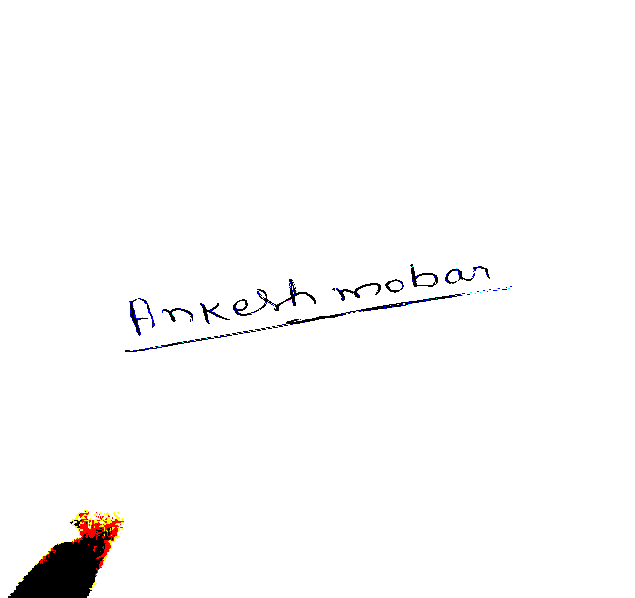 Ankesh mobar